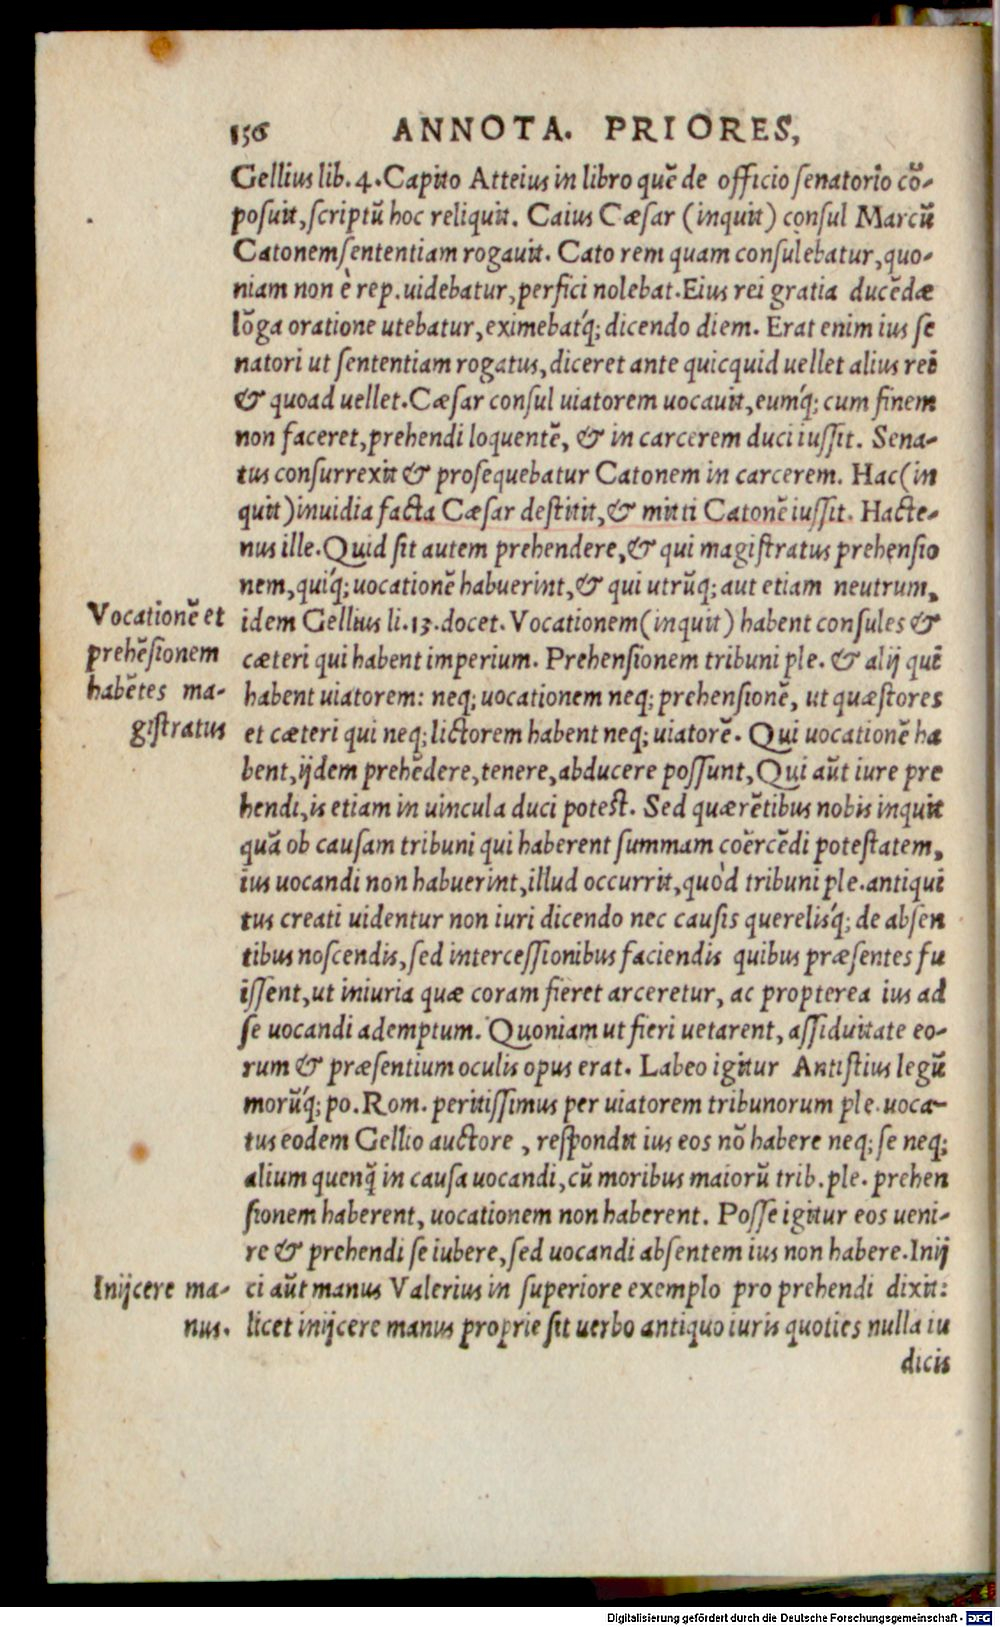 156 ANNOTA. PRIORES,
Gellius lib. 4. Capito Atteius in libro quē de officio senatorio cō-
posuit, scriptū hoc reliquit. Caius Cæsar (inquit) consul Marcū
Catonem sententiam rogauit. Cato rem quam consulebatur, quo-
niam non è rep. uidebatur, perfici nolebat. Eius rei gratia ducēdæ
lōga oratione utebatur, eximebatq́; dicendo diem. Erat enim ius se
natori ut sententiam rogatus, diceret ante quicquid uellet alius rei
& quoad uellet. Cæsar consul uiatorem uocauit, eumq́; cum finem
non faceret, prehendi loquentē, & in carcerem duci iussit. Sena-
tus consurrexit & prosequebatur Catonem in carcerem. Hac (in
quit) inuidia facta Cæsar destitit, & mitti Catonē iussit. Hacte-
nus ille. Quid sit autem prehendere, & qui magistratus prehensio
nem, quiq́; uocationē habuerint, & qui utrūq; aut etiam neutrum,
Vocationē et
prehēsionem
habētes ma-
gistratus
idem Gellius li. 13. docet. Vocationem (inquit) habent consules &
cæteri qui habent imperium. Prehensionem tribuni ple. & alij qui
habent uiatorem: neq; uocationem neq; prehensionē, ut quæstores
et cæteri qui neq; lictorem habent neq; uiatorē. Qui uocationē ha
bent, ijdem prehēdere, tenere, abducere possunt, Qui aūt iure pre
hendi, is etiam in uincula duci potest. Sed quærētibus nobis inquit
quā ob causam tribuni qui haberent summam coërcēdi potestatem,
ius uocandi non habuerint, illud occurrit, quòd tribuni ple. antiqui
tus creati uidentur non iuri dicendo nec causis querelisq́; de absen
tibus noscendis, sed intercessionibus faciendis quibus præsentes fu
issent, ut iniuria quæ coram fieret arceretur, ac propterea ius ad
se uocandi ademptum. Quoniam ut fieri uetarent, assiduitate eo-
rum & præsentium oculis opus erat. Labeo igitur Antistius legū
morūq́; po. Rom. peritissimus per uiatorem tribunorum ple. uoca-
tus eodem Gellio auctore, respondit ius eos nō habere neq; se neq;
alium quenq̄ in causa uocandi, cū moribus maiorū trib. ple. prehen
sionem haberent, uocationem non haberent. Posse igitur eos ueni-
re & prehendi se iubere, sed uocandi absentem ius non habere. Inij
Inijcere ma-
nus.
ci aūt manus Valerius in superiore exemplo pro prehendi dixit:
licet inijcere manus proprie sit uerbo antiquo iuris quoties nulla iu
dicis
Digitalisierung gefördert durch die Deutsche Forschungsgemeinschaft - DFG